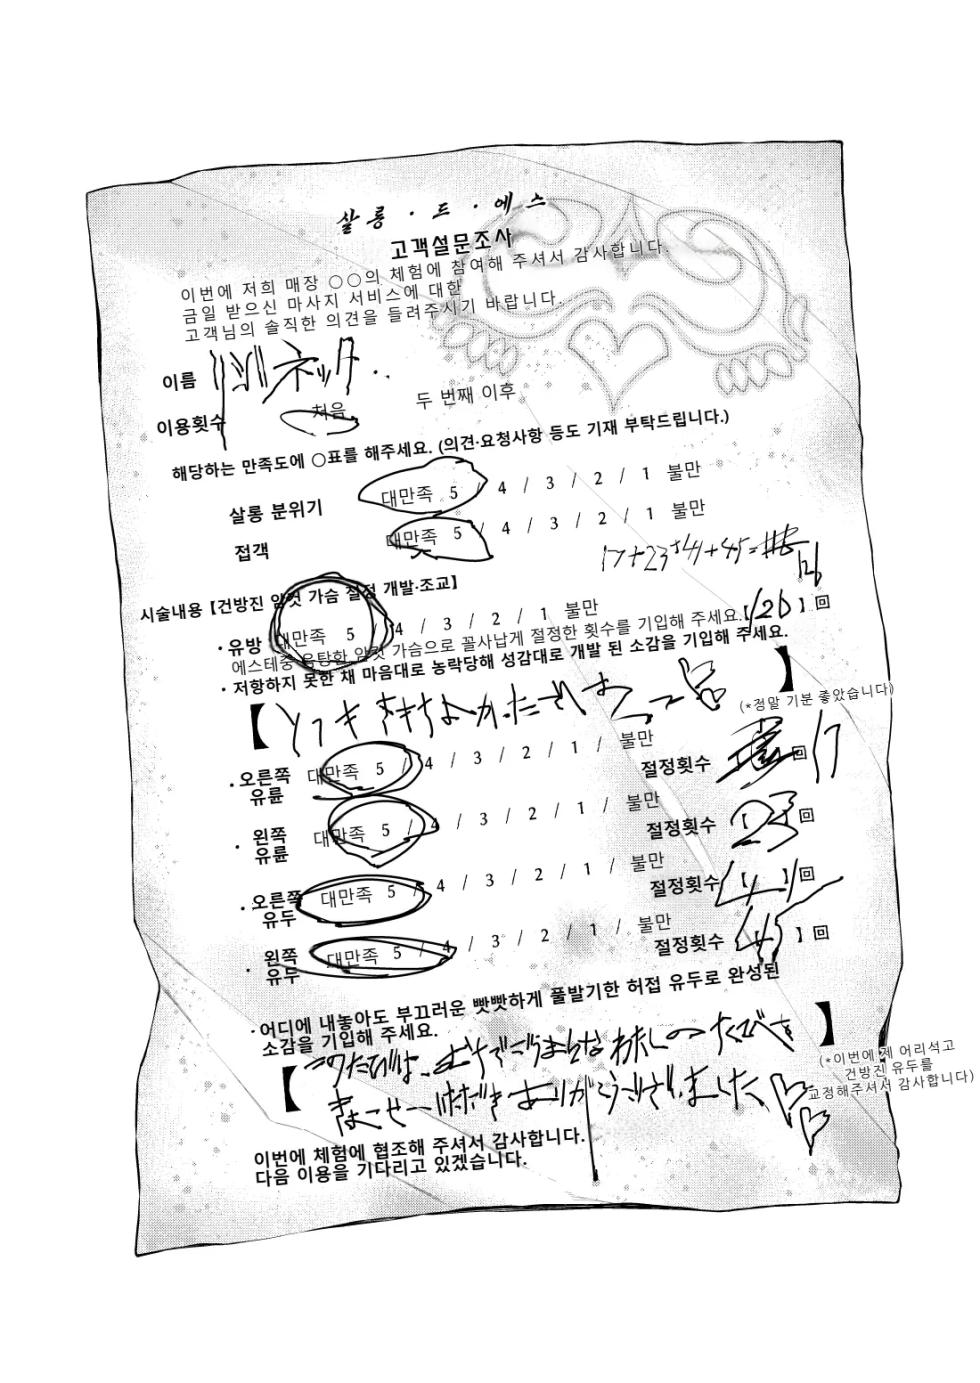 살롱·드·에스
고객설문조사
이번에 저희 매장 ○○의 체험에 참여해 주셔서 감사합니다.
금일 받으신 마사지 서비스에 대한
고객님의 솔직한 의견을 들려주시기 바랍니다.
이름 ネッタ
이용횟수 처음 두 번째 이후
해당하는 만족도에 ○표를 해주세요. (의견·요청사항 등도 기재 부탁드립니다.)
살롱 분위기 대만족 5 / 4 / 3 / 2 / 1 불만
접객 대만족 5 / 4 / 3 / 2 / 1 불만
17+23+41+45=
126
시술내용 【건방진 암컷 가슴 절정 개발·조교】
·유방 대만족 5 / 4 / 3 / 2 / 1 불만
에스테중 음탕한 암컷 가슴으로 꼴사납게 절정한 횟수를 기입해 주세요.【126】回
·저항하지 못한 채 마음대로 농락당해 성감대로 개발 된 소감을 기입해 주세요.
【とてもきもちよかったです】
(*정말 기분 좋았습니다)
·오른쪽 유륜 대만족 5 / 4 / 3 / 2 / 1 / 불만 절정횟수 回 17
·왼쪽 유륜 대만족 5 / 4 / 3 / 2 / 1 / 불만 절정횟수【23】回
·오른쪽 유두 대만족 5 / 4 / 3 / 2 / 1 / 불만 절정횟수【41】回
·왼쪽 유두 대만족 5 / 4 / 3 / 2 / 1 / 불만 절정횟수【45】回
·어디에 내놓아도 부끄러운 빳빳하게 풀발기한 허접 유두로 완성된
소감을 기입해 주세요.
【このたびは、
ありがとうございました】
(*이번에 제 어리석고
건방진 유두를
교정해주셔서 감사합니다)
이번에 체험에 협조해 주셔서 감사합니다.
다음 이용을 기다리고 있겠습니다.